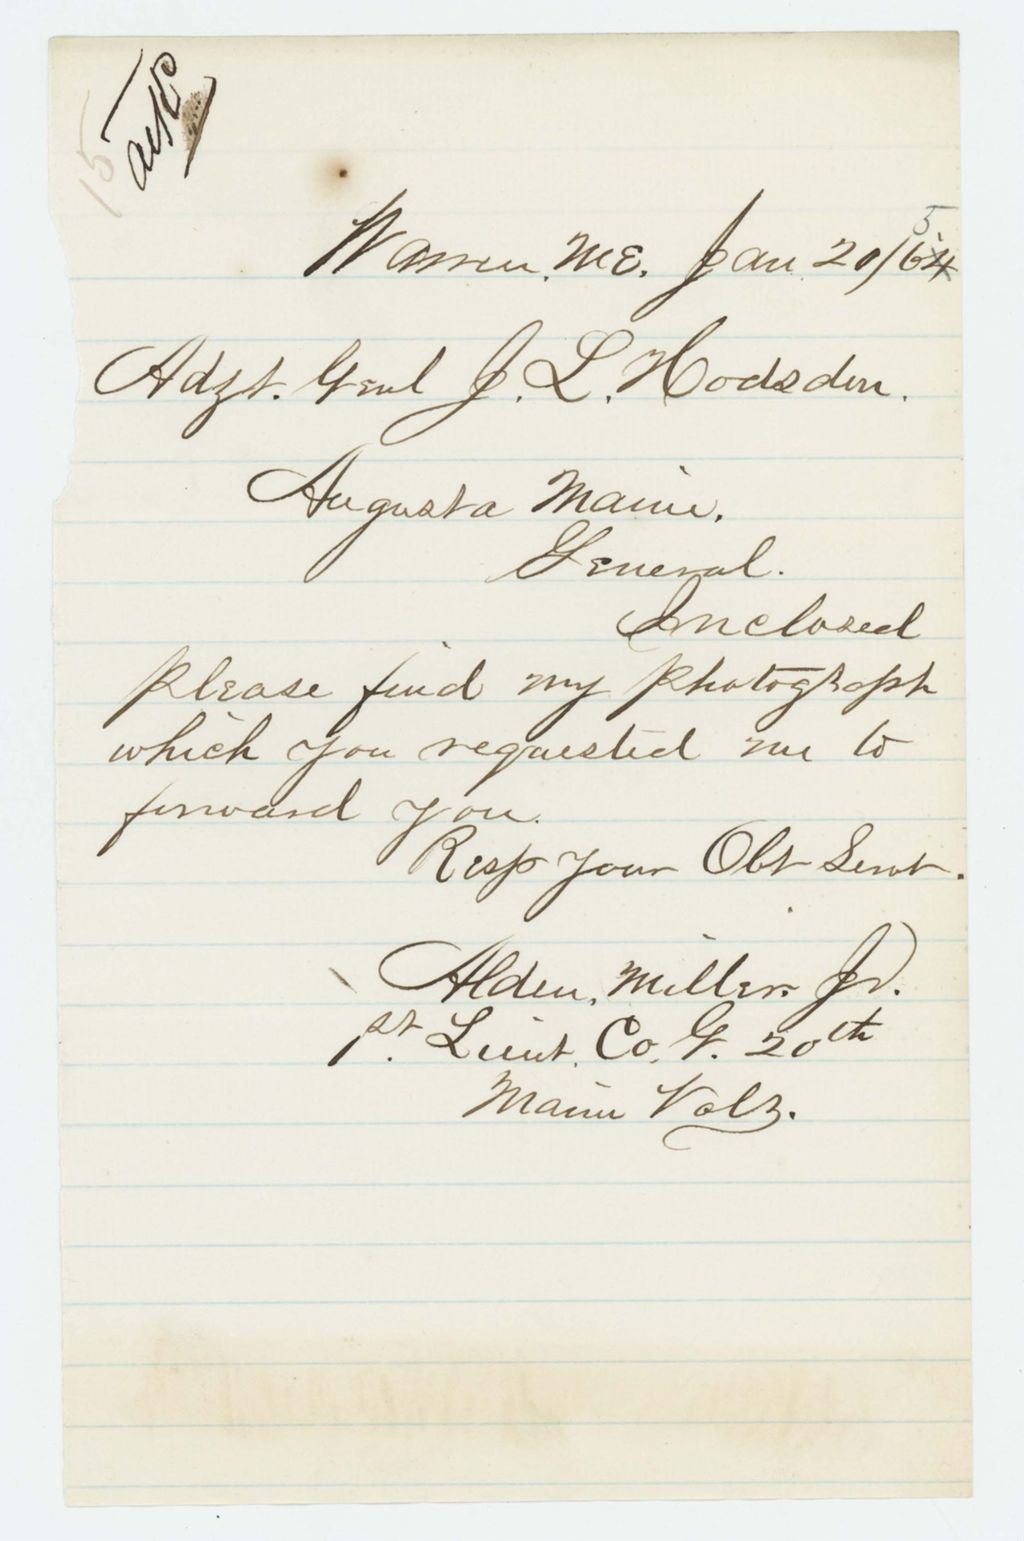 15
Warren, ME. Jan. 20/64
5
Adzt. Genl J. L. Hodsdon.
Augusta Maine.
General.
Inclosed
please find my photograph
which you requested me to
forward you.
Resp your Obt Servt.
Alden, Miller Jr.
1st. Lieut. Co. G. 20th
Maine Vols.